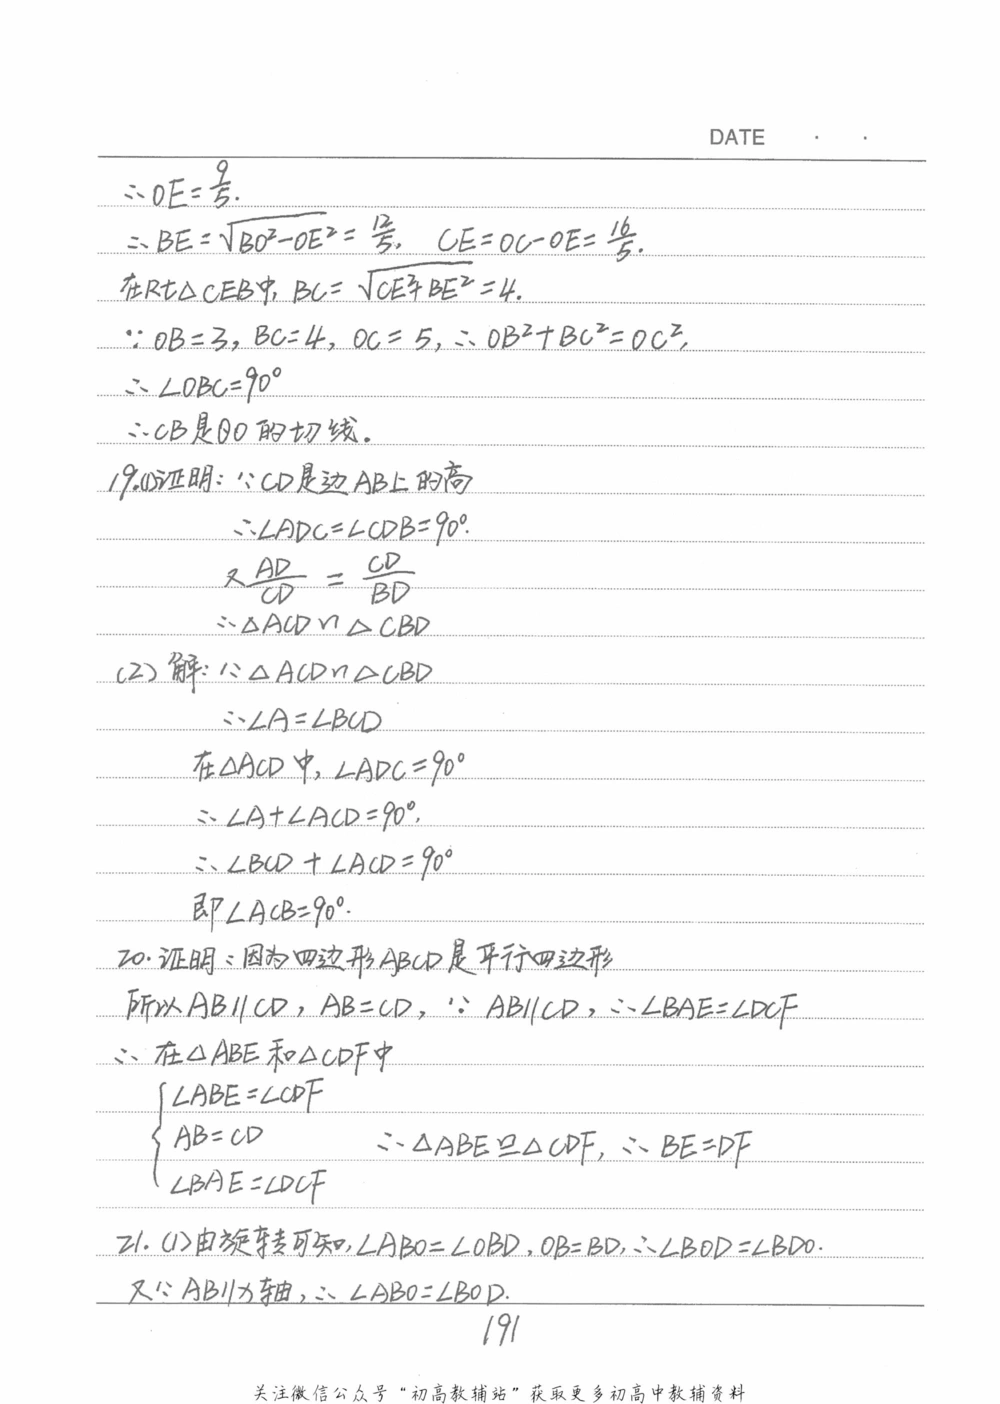 DATE · ·
∴OE=9/5.
∴BE=√(BO²-OE²)=12/5, CE=OC-OE=16/5.
在Rt△CEB中, BC=√(CE²+BE²)=4.
∵OB=3, BC=4, OC=5, ∴OB²+BC²=OC²,
∴∠OBC=90°
∴CB是⊙O的切线.
19.(1)证明:∵CD是边AB上的高
∴∠ADC=∠CDB=90°.
又AD/CD=CD/BD
∴△ACD∽△CBD
(2)解:∵△ACD∽△CBD
∴∠A=∠BCD
在△ACD中,∠ADC=90°
∴∠A+∠ACD=90°.
∴∠BCD+∠ACD=90°
即∠ACB=90°.
20.证明:因为四边形ABCD是平行四边形
所以AB∥CD, AB=CD, ∵AB∥CD, ∴∠BAE=∠DCF
∴在△ABE和△CDF中
{∠ABE=∠CDF
AB=CD ∴△ABE≌△CDF, ∴BE=DF
∠BAE=∠DCF
21.(1)由旋转可知,∠ABO=∠OBD,OB=BD,∴∠BOD=∠BDO.
又∵AB∥x轴,∴∠ABO=∠BOD.
191
关注微信公众号“初高教辅站”获取更多初高中教辅资料